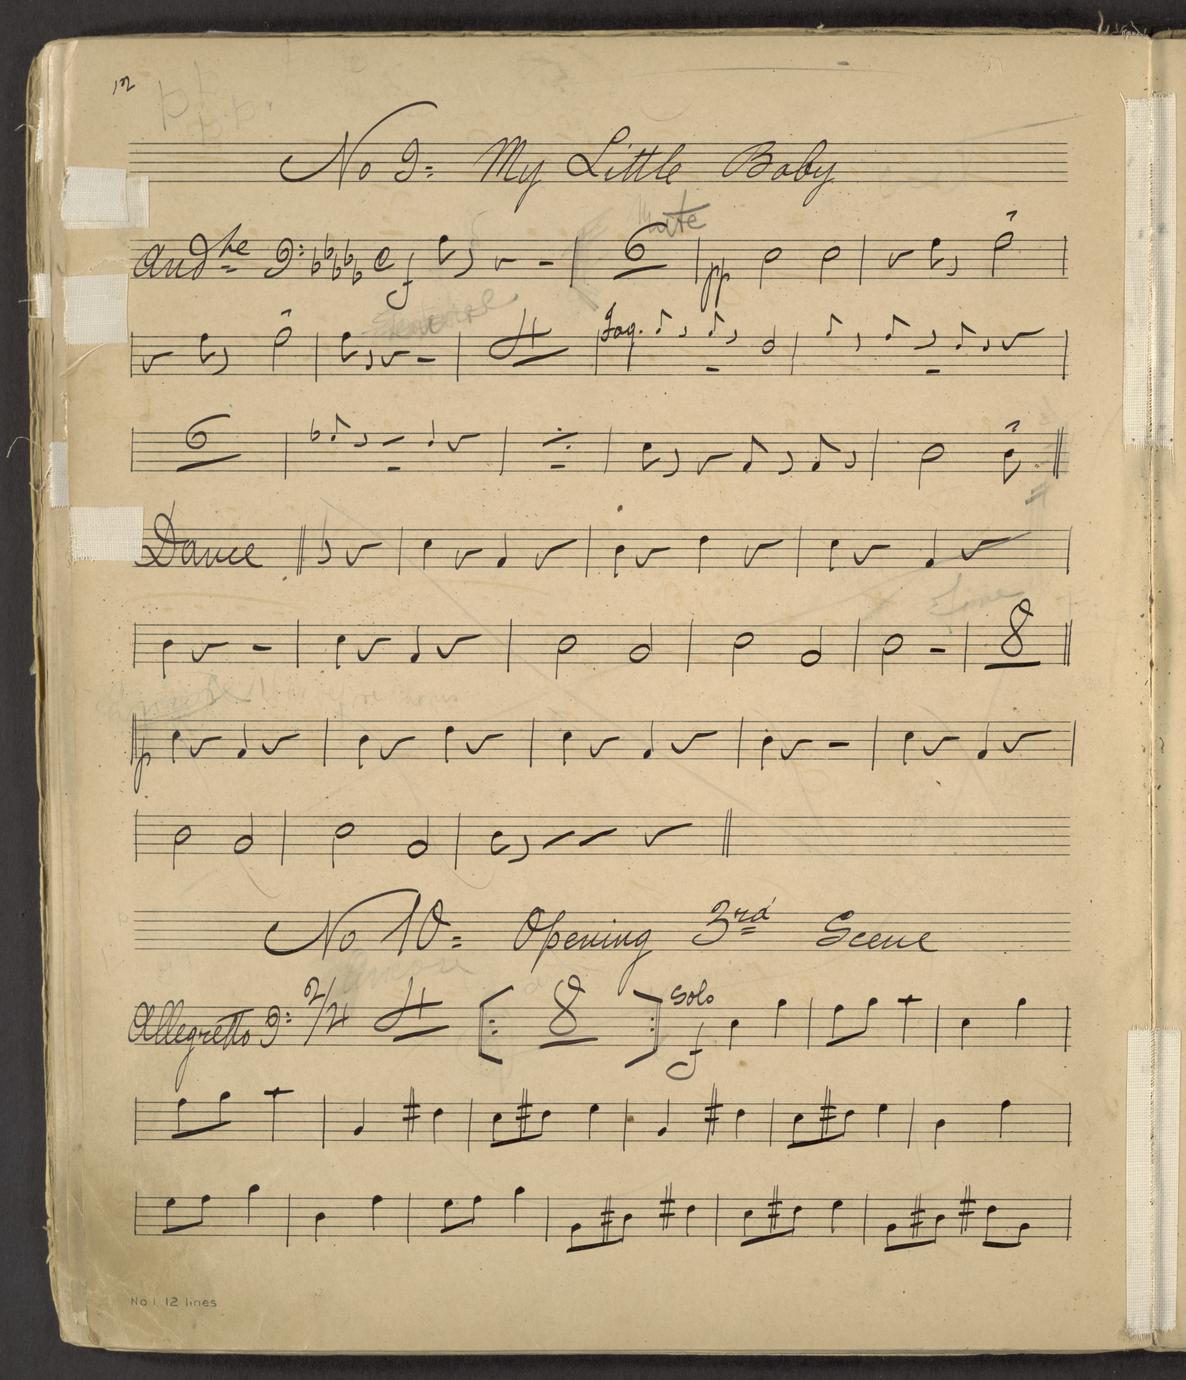 12
No 9= My Little Baby
mute
And te C f 6 pp
4 Fag.
6
Dance
Time
8
p
No 10= Opening 3rd Scene
Encore
Solo
Allegretto 2/4 4 8 f
No 1 12 lines